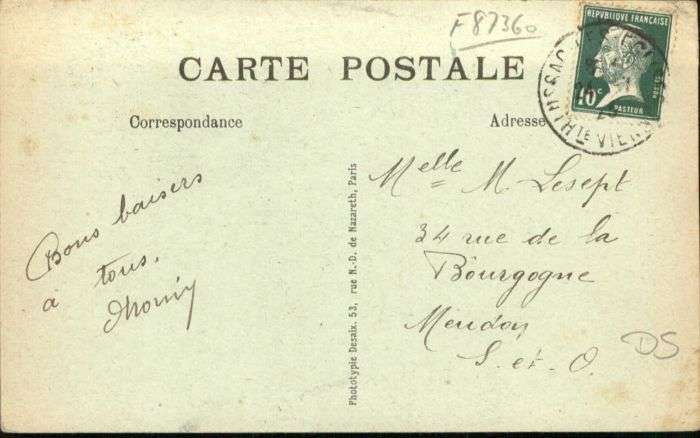 F87360
RÉPUBLIQUE FRANÇAISE
10c
PASTEUR
HTE VIENNE
CARTE POSTALE
Correspondance
Adresse
Bons baisers
à tous.
Phototypie Desaix. 53, rue N.-D. de Nazareth, Paris
Melle M Lesept
34 rue de la
Bourgogne
Meudon
S. et. O.
DS